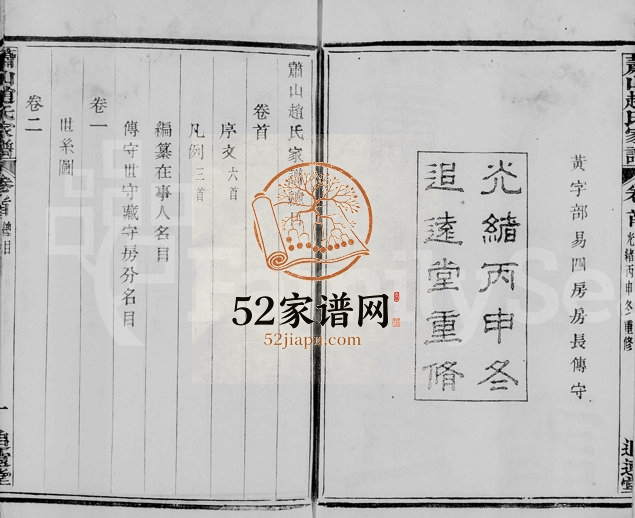 黃字部易四房房長傳守
光緒丙申冬
追遠堂重脩
卷首
光緒丙申冬重修
追遠堂
蕭山趙氏家譜
卷首
序文 六首
凡例 三首
編纂在事人名目
傳守世守藏守房分名目
卷一
世系圖
卷二
蕭山趙氏家譜
卷首
總目
一
追遠堂
52家谱网
52jiapu.com
FamilySe